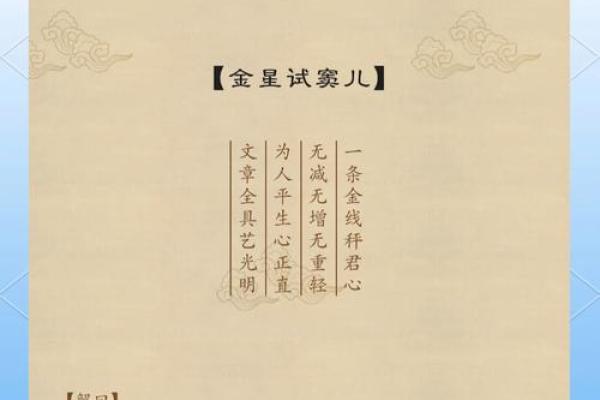 【金星试窦儿】
一条金线秤君心
无减无增无重轻
为人平生心正直
文章全具艺光明